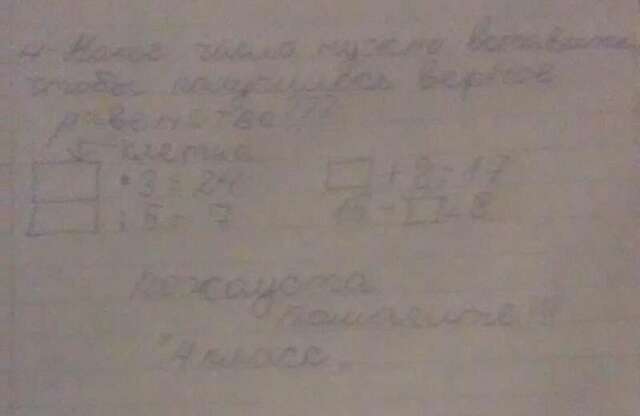 4 Какое число нужно вставить
чтобы получилось верное
равенство???
5 клетка
□ • 3 = 24 □ + 8 = 17
□ : 5 = 7 16 - □ = 8
Пожауста
помогите!!
4 класс.